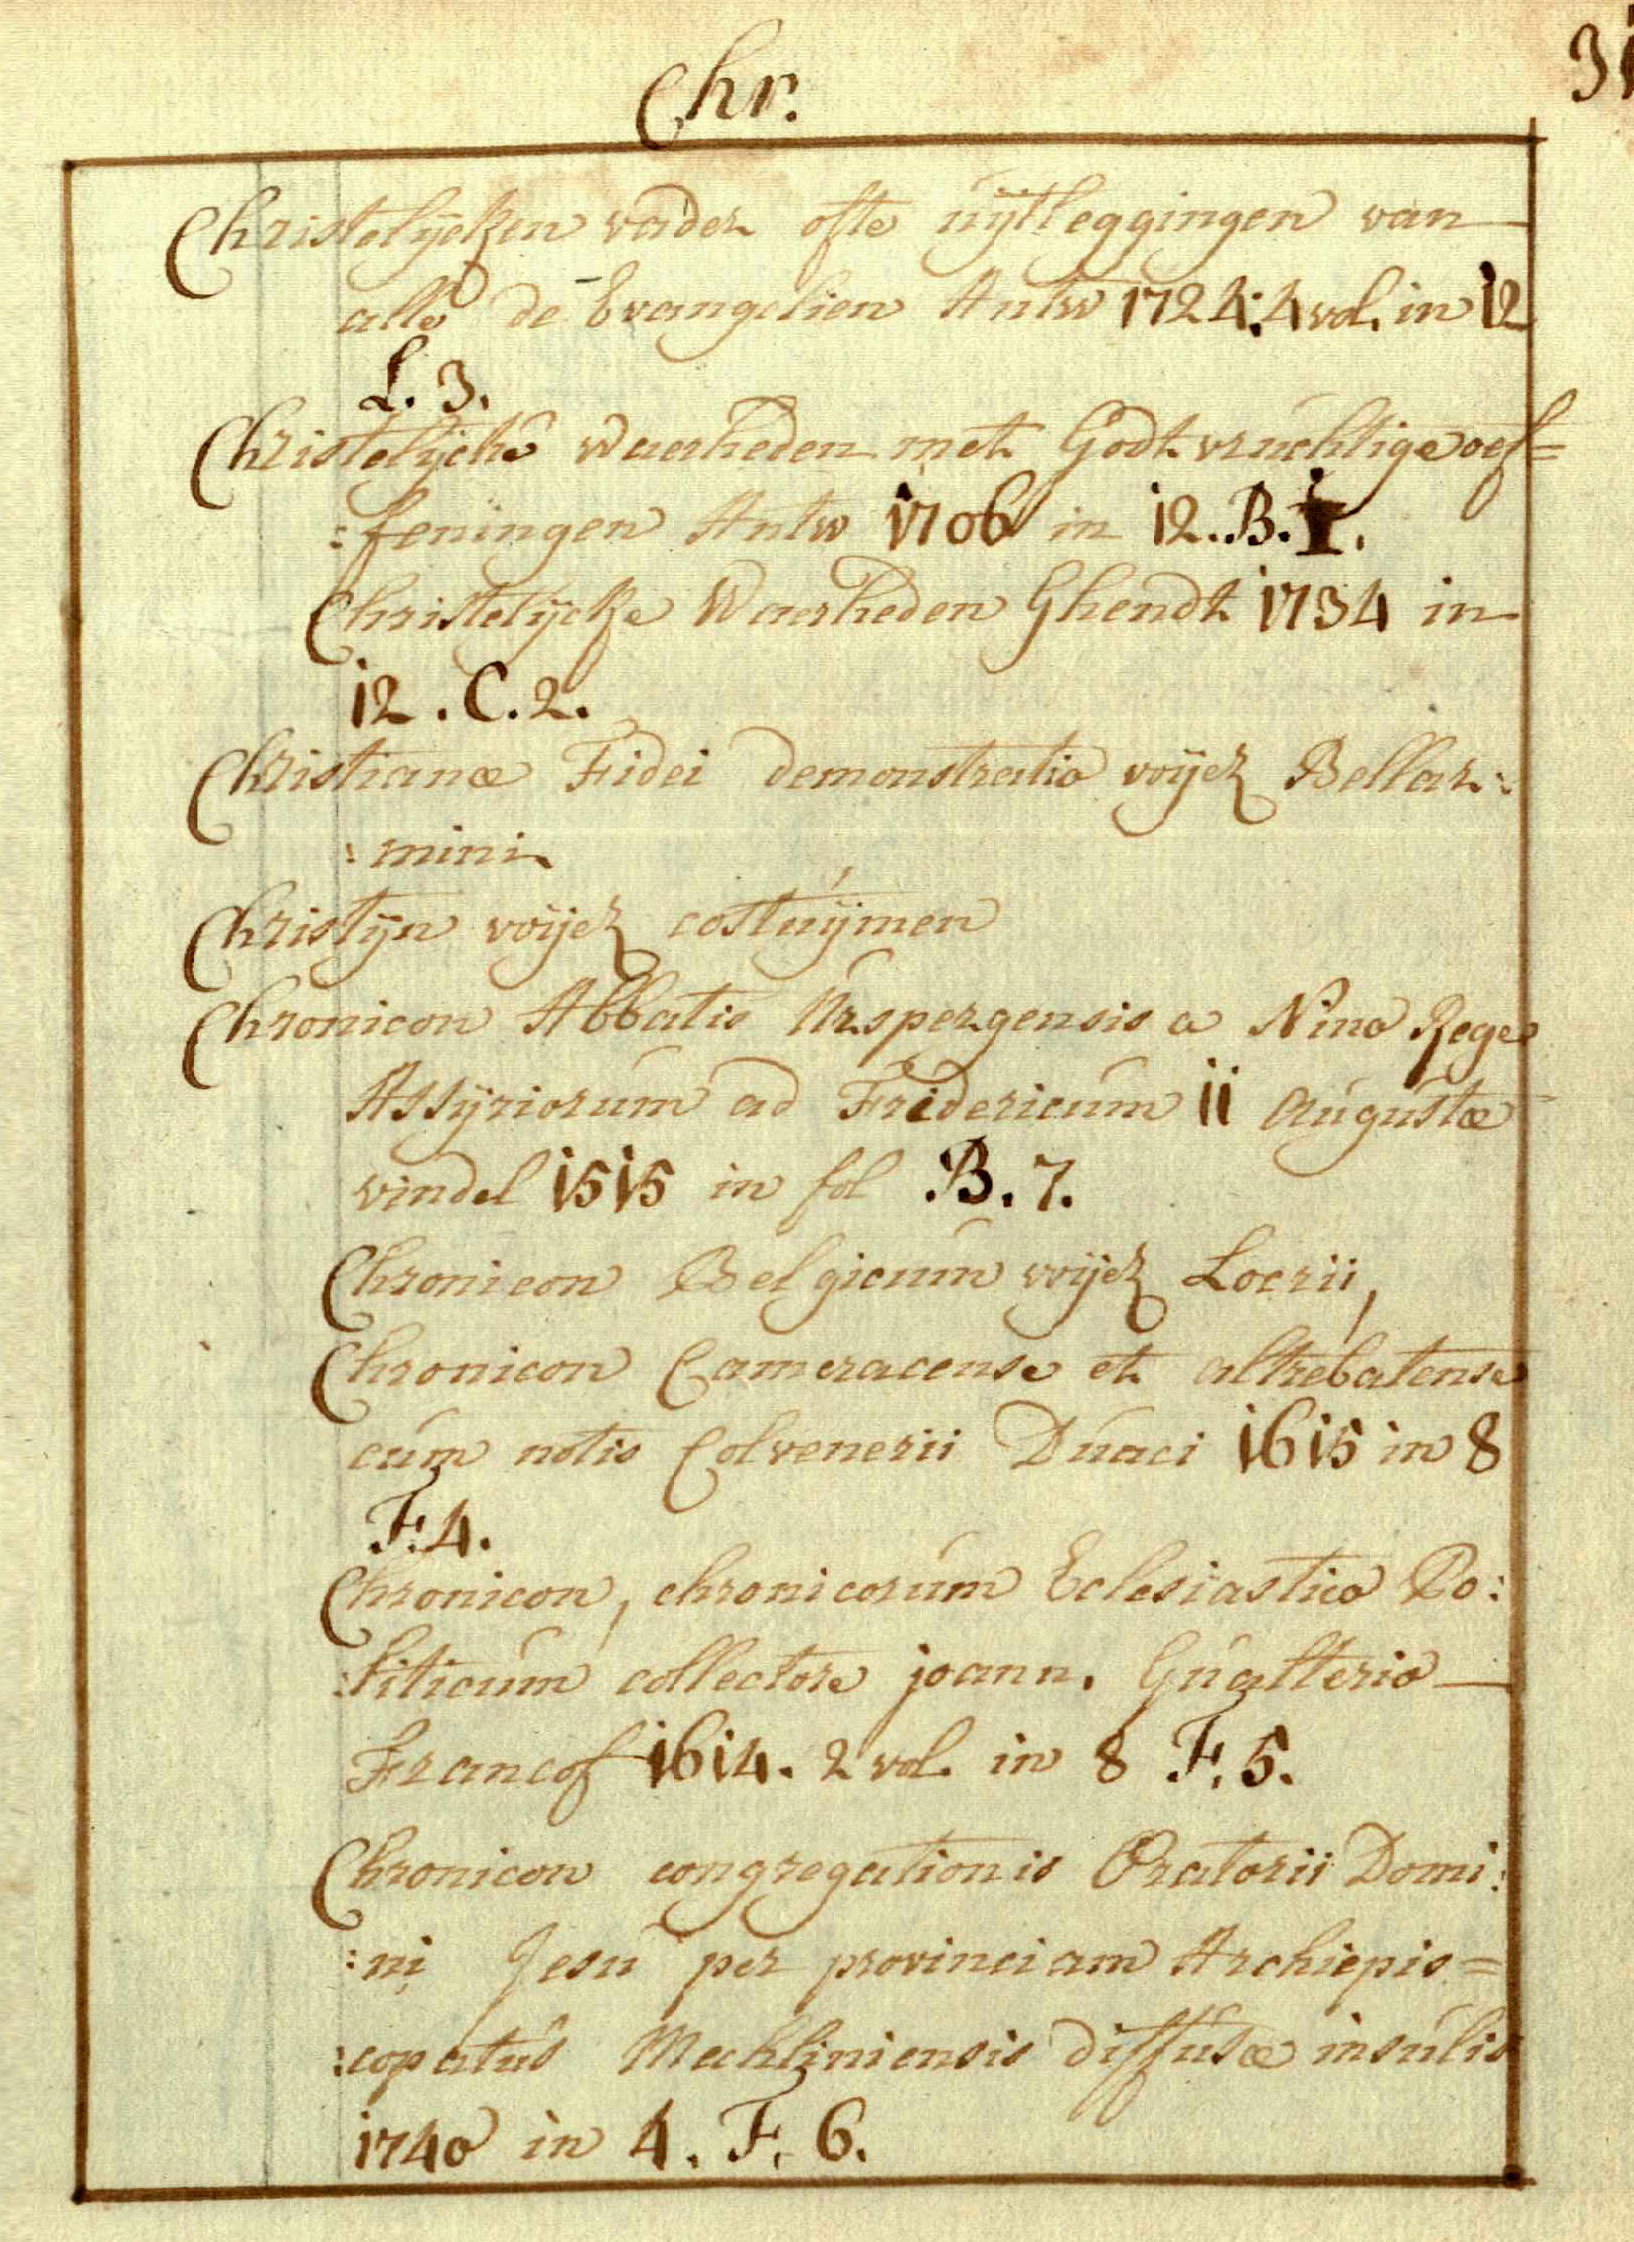 Chr.
31
Christelÿcken vader ofte uÿtleggingen van
alle de Evangelien Antw 1724. 4 vol. in 12
L. 3.
Christelÿcke waerheden met Godtvruchtige oef=
:feningen Antw 1706 in 12. B. I.
Christelÿcke Waerheden Ghendt 1734 in
12. C. 2.
Christianæ Fidei demonstratio voÿez Bellar:
:mini
Christÿn voÿez costuÿmen
Chronicon Abbatis Urspergensis a Nino Rege
Assÿriorum ad Fridericum ii Augustæ
vindel 1515 in fol B. 7.
Chronicon Belgicum voÿez Locrii,
Chronicon Cameracense et altrebatense
cum notis Colvenerii Duaci 1615 in 8
F. 4.
Chronicon, chronicorum Eclesiastico Po:
:liticum collectore joann. Gualterio
Francof 1614. 2 vol. in 8 F. 5.
Chronicon congregationis Oratorii Domi:
:ni Jesu per provinciam Archiepis=
:copatus Mechliniensis diffusæ insulis
1740 in 4. F. 6.